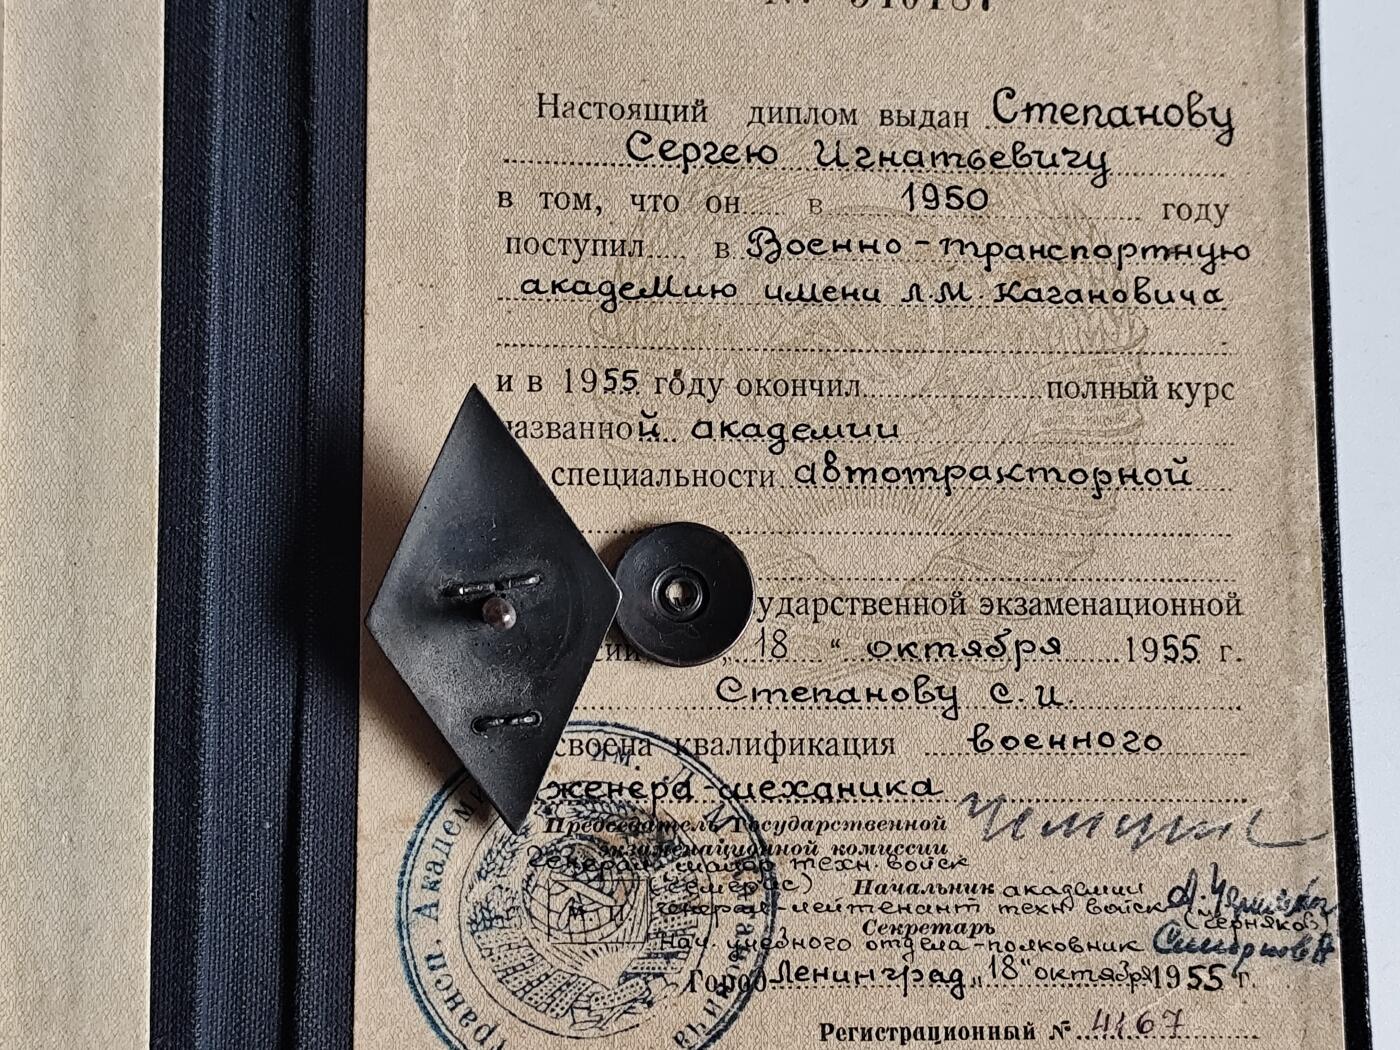 Настоящий диплом выдан Степанову
Сергею Игнатьевичу
в том, что он в 1950 году
поступил в Военно-транспортную
академию имени Л.М. Кагановича
и в 1955 году окончил полный курс
названной академии
специальности автотракторной
ударственной экзаменационной
сии „18“ октября 1955 г.
Степанову С.И.
своена квалификация военного
женера-механика
Председатель Государственной
экзаменационной комиссии
генерал-майор техн. войск
(Семерис) Начальник академии
генерал-лейтенант техн войск
(Черняков)
Секретарь
Нач. учебного отдела-полковник
Город Ленинград „18“ октября 1955 г.
Регистрационный № 4167